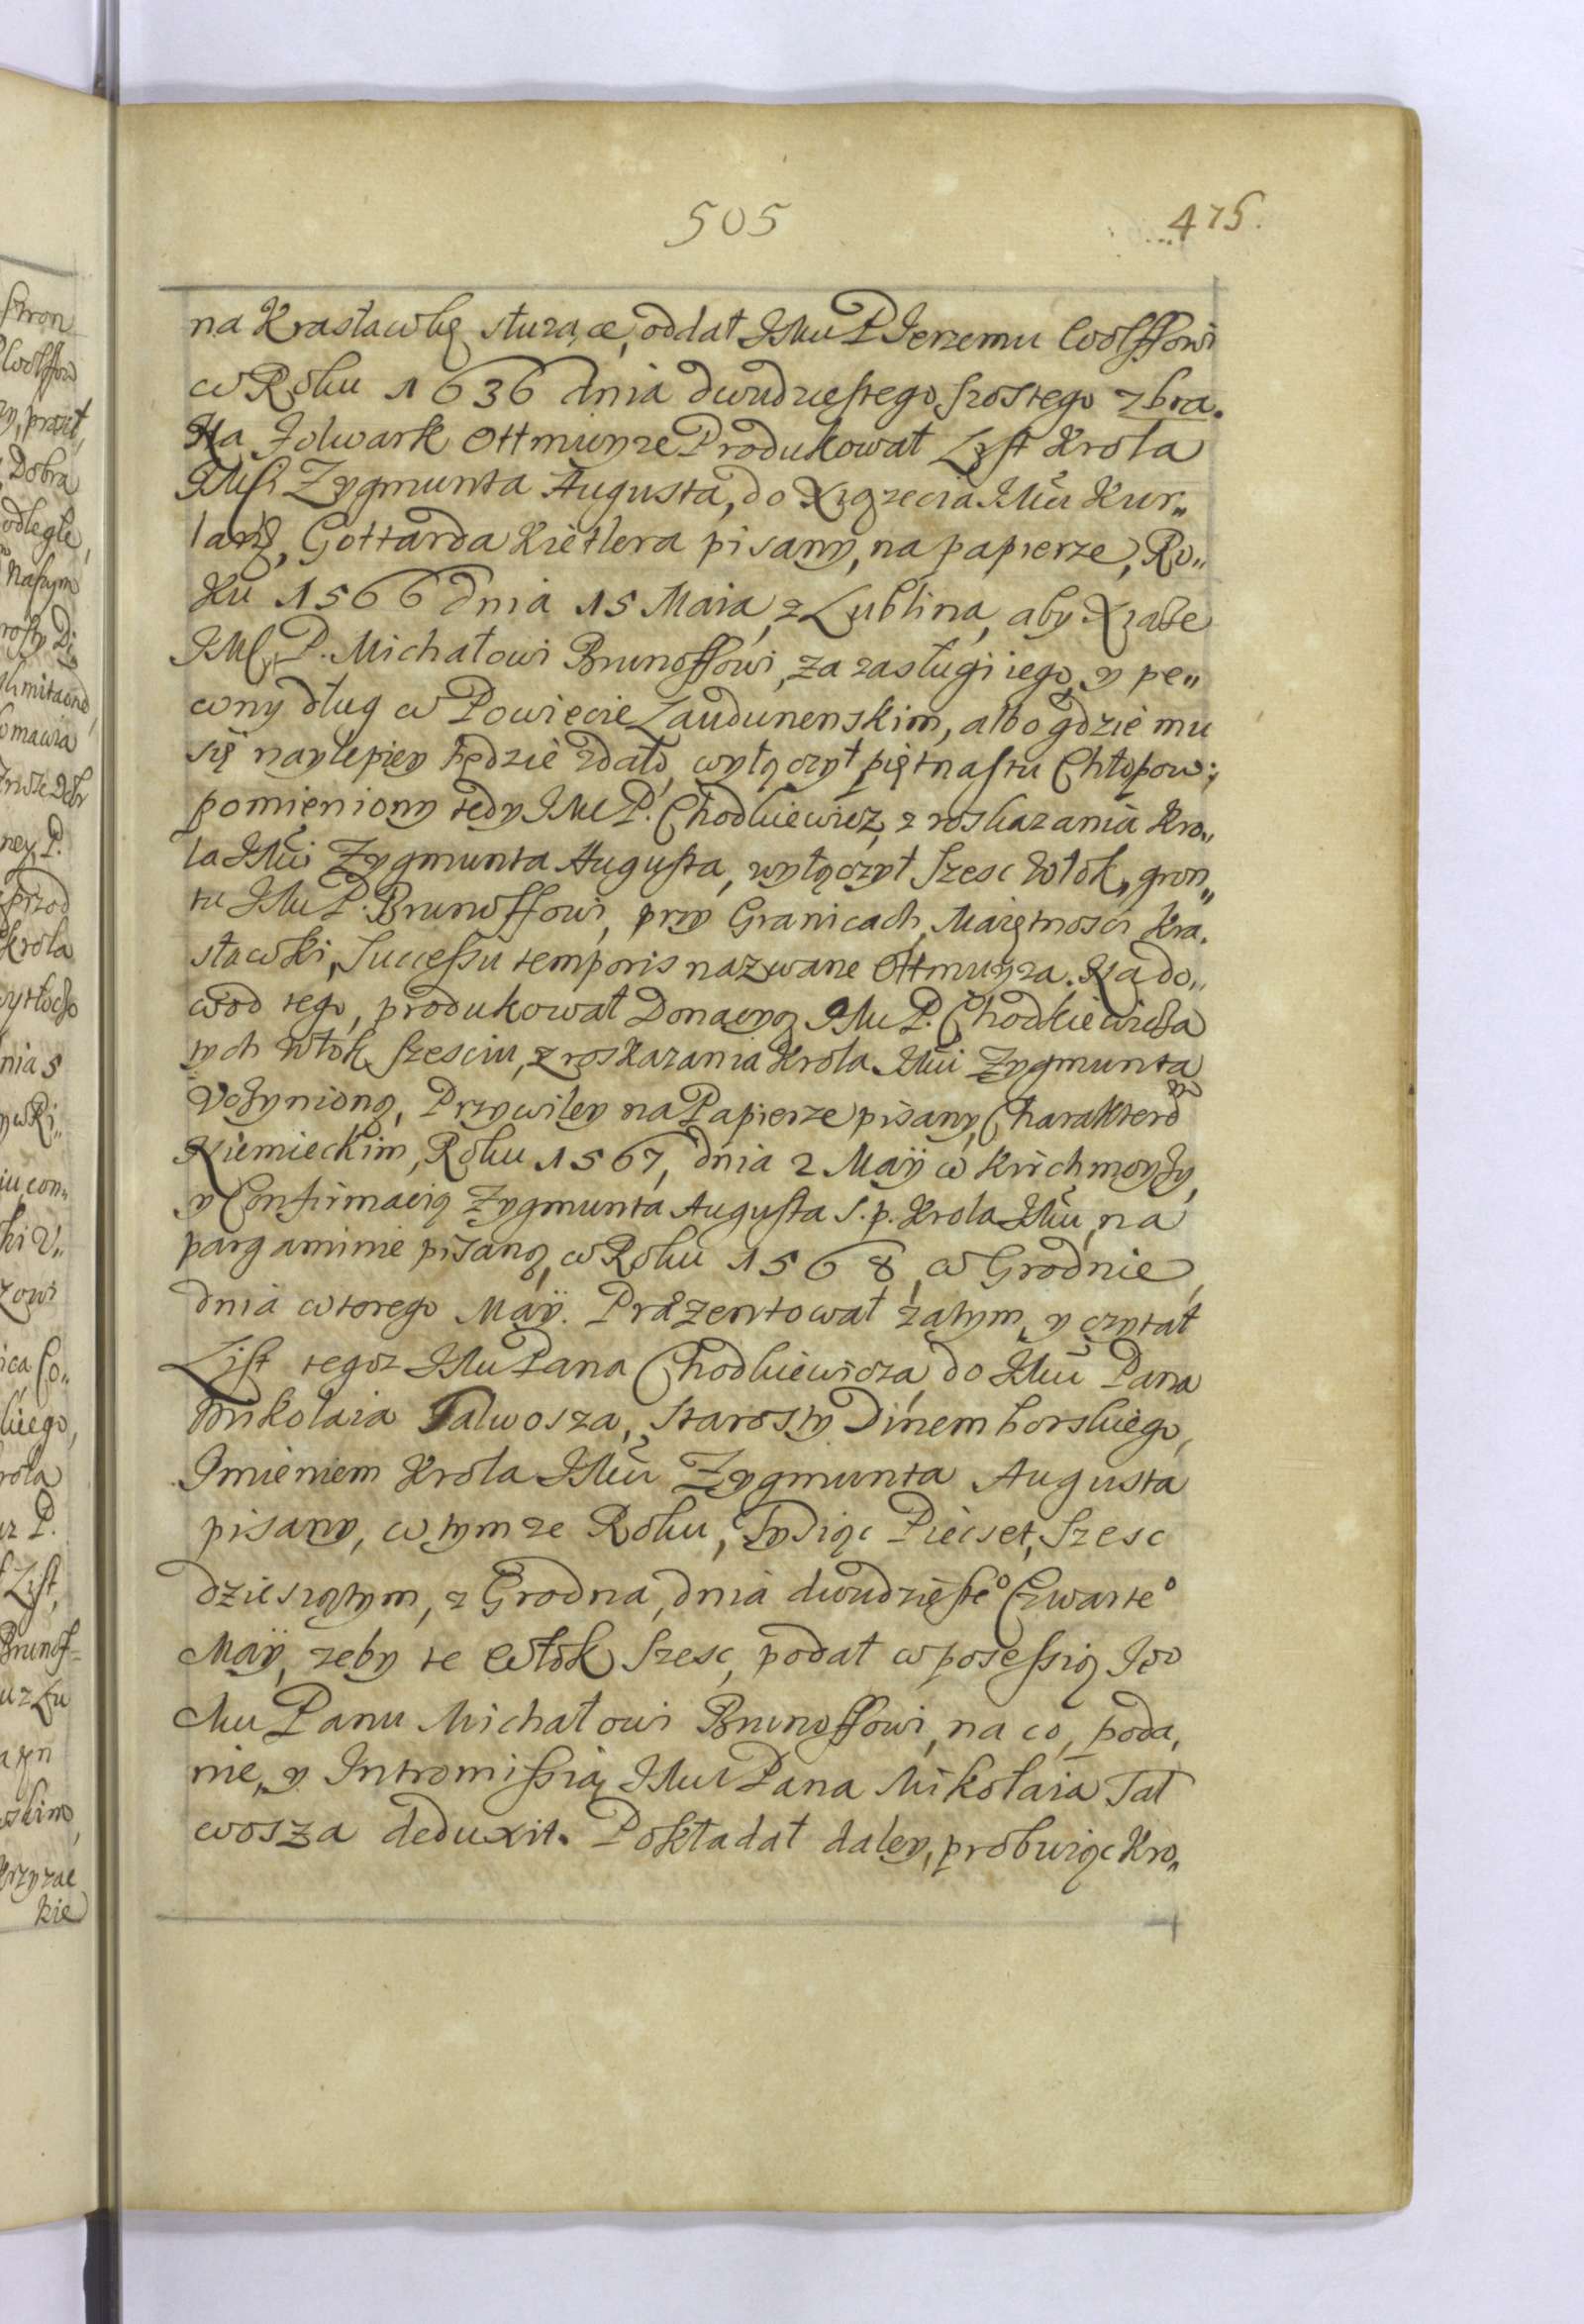 505
475.
na Krasławkę służące, oddał JMu P Jerzemu Wolffowi
w Roku 1636 dnia dwudziestego szostego 7bra.
Na Folwark Ottmuyze Produkował List Krola
JMści Zygmunta Augusta, do Xiązecia JMu Kur„
lanḍ, Gottarda Kietlera pisany, na papierze, Ro„
Ku 1566 dnia 15 Maia, z Lublina, aby Xiąże
JMsc P. Michałowi Brunoffowi, za zasługi iego, y pe„
wny dług w Powiecie Laudunenskim, albo gdzie mu
się naylepiey będzie zdało, wyłączył piętnastu Chłopow;
pomieniony tedy JMc P. Chodkiewicz, z roskazania Kro„
la JMci Zygmunta Augusta, wyłączył szesc Włok, gron„
tu JMu P. Brunoffowi, przy Granicach, Maiętnosci Kra.
sławki, Successu temporis nazwane Ottmuyza. Na do„
wod tego, produkował Donacyą JMu P. Chodkiewicza
tych Włok szesciu, z roskazania Krola JMci Zygmunta
Vczynioną, Przywiley na Papierze pisany, Charakterẽ
Niemieckim, Roku 1567, dnia 2 Maÿ w Kirchmoyzy,
y Confirmacią Zygmunta Augusta S. p. Krola JMu, na
pargaminie pisaną, w Roku 1568, w Grodnie,
dnia wtorego Maÿ. Præzentował zatym, y czytał
List tegoz JMu Pana Chodkiewicza, do JMu Pana
Mikolaia Talwosza, Starosty Dinemborskiego,
Imieniem Krola JMu Zygmunta Augusta
pisany, w tymze Roku, Tysiąc Piecset, Szesc
dziesiątym, z Grodna, dnia dwudzieste° Czwarte°
Maÿ, zeby te Włok szesc, podał w posessią Je°
Mu Panu Michałowi Brunoffowi, na co, poda,
nie, y Intromissią JMu Pana Mikołaia Tal
wosza deduxit. Pokładał daley, probuiąc Kro„